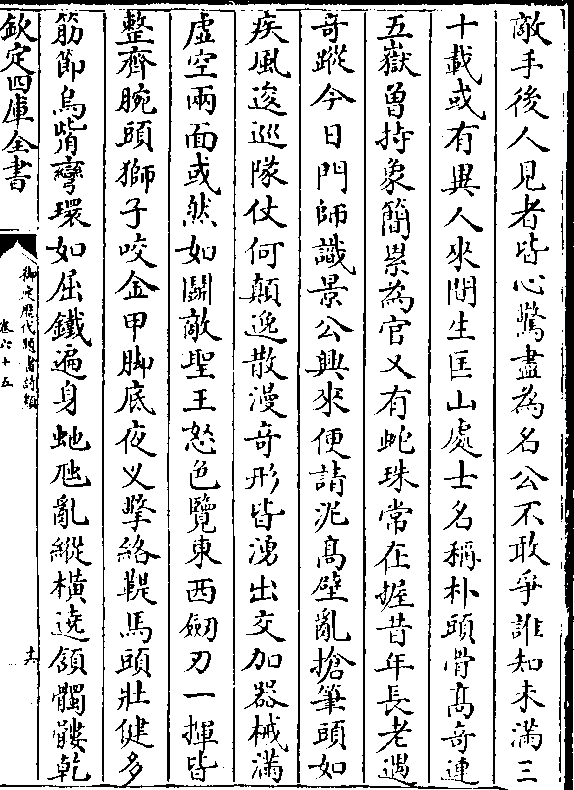 敵手後人見者皆心驚盡為名公不敢爭誰知未滿三
十載或有異人來間生匡山處士名稱朴頭骨高奇連
五嶽曾持象簡累為官又有蛇珠常在握昔年長老遇
奇蹤今日門師識景公興來便請泥高壁亂搶筆頭如
疾風逡巡隊仗何顛逸散漫奇形皆湧出交加器械滿
虛空兩面或然如鬬敵聖王怒色覽東西劒刃一揮皆
整齊腕頭獅子咬金甲脚底夜叉擎絡鞮馬頭壯健多
筋節烏觜彎環如屈鐵遍身虵虺亂縱橫遶頷髑髏乾
欽定四庫全書
御定歷代題畫詩類
卷六十五
十六